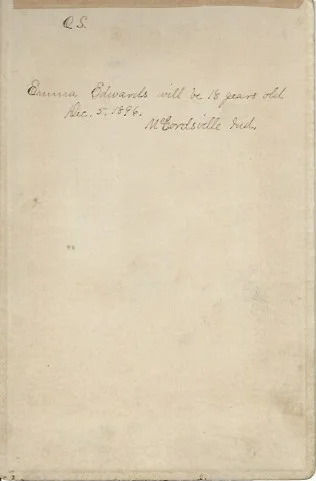 C.S.
Emma Edwards will be 18 years old
Dec. 5, 1896.
McCordsville Ind.